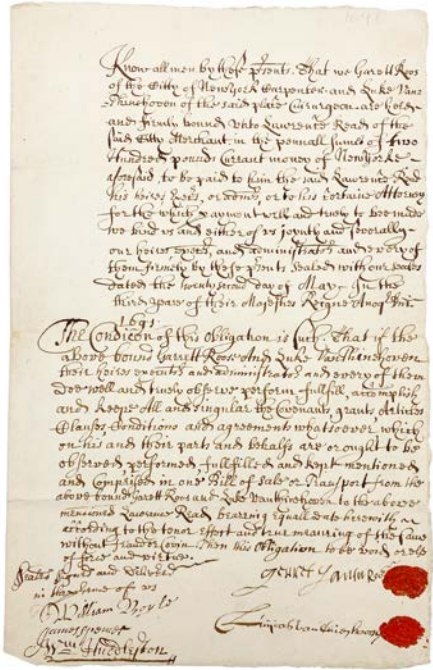 Know all men by these prsents. That we Garett Roos
of the Citty of New Yorke Carpenter and Luke Vane
Thinehoven of the said place Cirurgeon are held
and firmly bound unto Lawrence Read of the
said Citty Merchant in the pennall sume of two
Hundred pounds Currant money of New Yorke
aforesaid, to be paid to him the said Lawrence Read
his heires or to his Certaine Attorney
for the which payment well and truely to bee made
we bind us and either of us joyntly and severally
our heires and administrators and every of
them firmely by these prsents Sealed with our seales
dated the twenty second day of May In the
third yeare of their Majesties Reigne
1691
The Condicon of this Obligation is such That if the
above bound Garrett Roose And Luke Van Thinehoven
their heires and administrators and every of them
doe well and truely observe performe fullfill, accomplish
and keepe All and singular the Covenants, grants, Articles
Clauses, Conditions and agreements whatsoever which
on his and their parts and behalfs are or ought to be
observed performed, fullfilled and kept mentioned
and Comprised in one Bill of Sale or Transport from the
above bound Garett Roos and Luke Van thinehoven to the above
mentioned Lawrence Read bearring Equall date herewith
according to the tenor Effect and true meaning of the same
without fraud or Covin Then this Obligation to be void or else
of force and virtue.
Sealed signed and delivered
in the of us
William
Wm Huddleston